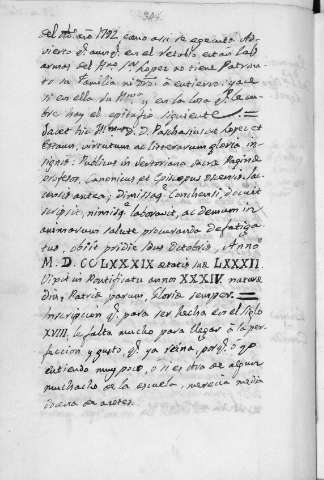 304
del d.ho año 1792 como asi se egecutó. Ad-
vierto q.e aunq.e en el retablo estan las
armas del Ylmo. S.r Lopez no tiene Patrona-
to su Familia ni dro. á entierro: yace
si en ella su Ylma. y en la losa q.e le cu-
bre hay el epitafio siguiente
Jacet hic Yllmus. D. D. Paschasius Lopez et
Estaun, virtutum ac litterarum gloria in-
signis: Publicus in Sertoriana sacræ Paginæ
profesor, Canonicus et Episcopus Oscensis, Ja-
censis antea; dimissaq. Conchensi, docuit
scripsit, nimisq. laboravit, ac demum in
animarum salute procuranda defatiga-
tus, obiit pridie Idus Octobris, Anno
M. D. CCLXXXIX ætatis suæ LXXXII.
Vixit in Pontificatu annos XXXIV. naturæ
diu, Patriæ parum, gloriæ semper.
Inscripcion q.e para ser hecha en el siglo
XVIII. le falta mucho para llegar á la per-
feccion y gusto q.e ya reina, porq.e ó yo
entiendo muy poco, ó si es obra de algun
muchacho de la escuela, merecia media
docena de azotes.